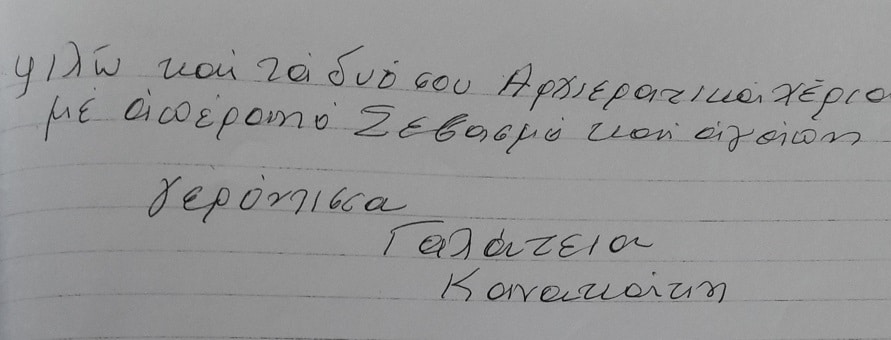 φιλῶ καί τά δυό σου Ἀρχιερατικά χέρια
μέ ἀπέραντό Σεβασμό καί ἀγάπη
γερόντισσα
Γαλάτεια
Κανακάκη